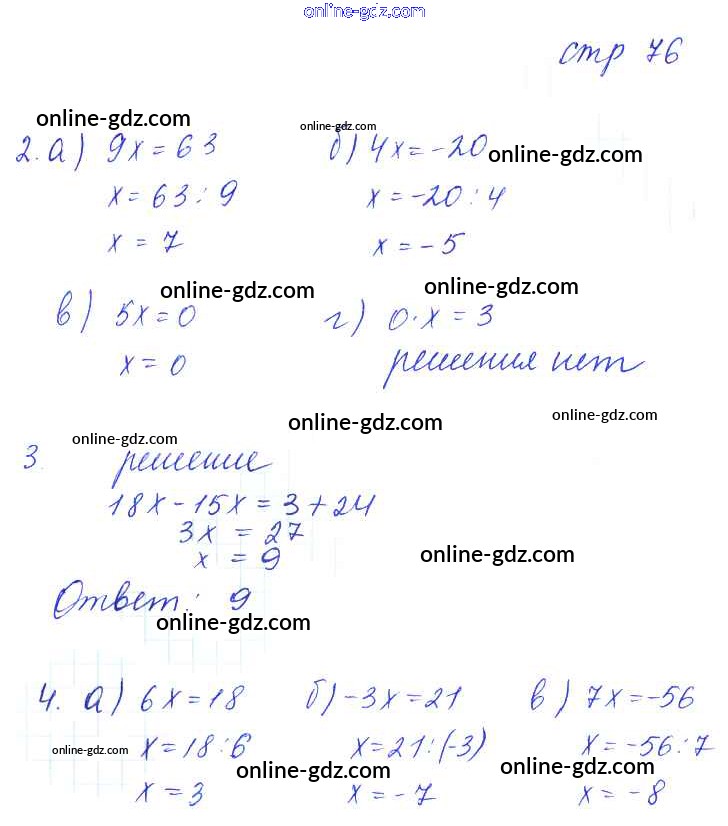 online-gdz.com
стр 76
online-gdz.com online-gdz.com
2. а) 9x = 63 б) 4x = -20 online-gdz.com
x = 63 : 9 x = -20 : 4
x = 7 x = -5
online-gdz.com online-gdz.com
в) 5x = 0 г) 0 · x = 3
x = 0 решения нет
online-gdz.com online-gdz.com online-gdz.com
3. решение
18x - 15x = 3 + 24
3x = 27
x = 9 online-gdz.com
Ответ: 9
online-gdz.com
4. а) 6x = 18 б) -3x = 21 в) 7x = -56
online-gdz.com x = 18 : 6 x = 21 : (-3) x = -56 : 7
online-gdz.com online-gdz.com
x = 3 x = -7 x = -8